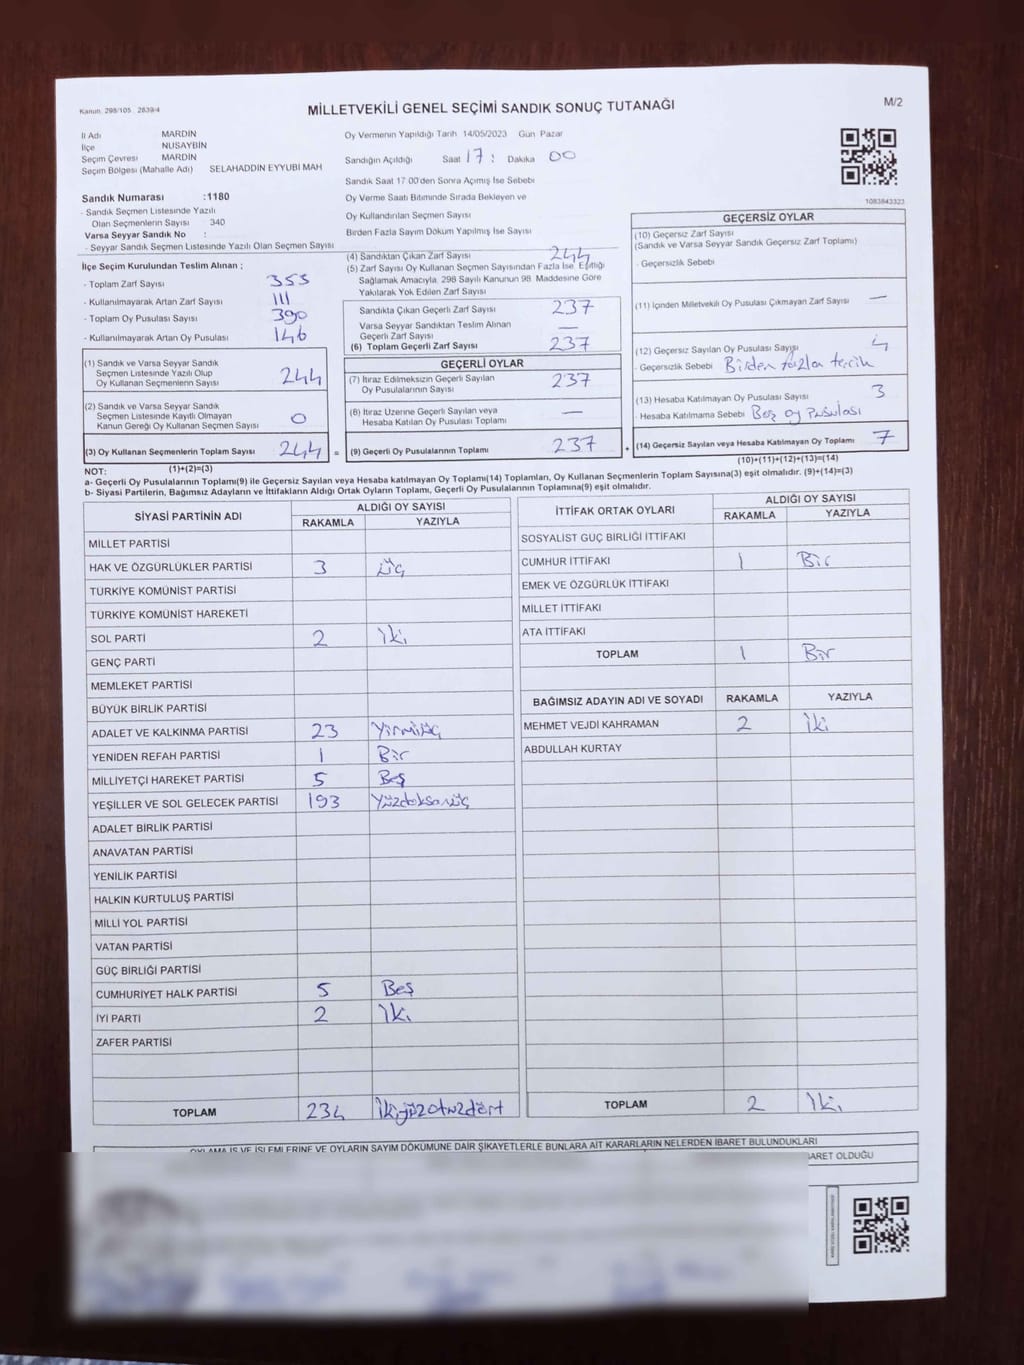 Kanun 298/105 2839/4
MİLLETVEKİLİ GENEL SEÇİMİ SANDIK SONUÇ TUTANAĞI
M/2
İl Adı MARDİN
İlçe NUSAYBİN
Seçim Çevresi MARDİN
Seçim Bölgesi (Mahalle Adı) SELAHADDİN EYYUBİ MAH
Sandık Numarası :1180
- Sandık Seçmen Listesinde Yazılı
Olan Seçmenlerin Sayısı : 340
Varsa Seyyar Sandık No :
- Seyyar Sandık Seçmen Listesinde Yazılı Olan Seçmen Sayısı
Oy Vermenin Yapıldığı Tarih 14/05/2023 Gün Pazar
Sandığın Açıldığı Saat 17 : Dakika 00
Sandık Saat 17 00'den Sonra Açımış İse Sebebi
Oy Verme Saati Bitiminde Sırada Bekleyen ve
Oy Kullandırılan Seçmen Sayısı
Birden Fazla Sayım Döküm Yapılmış İse Sayısı
1083843323
İlçe Seçim Kurulundan Teslim Alınan ;
- Toplam Zarf Sayısı 355
- Kullanılmayarak Artan Zarf Sayısı 111
- Toplam Oy Pusulası Sayısı 390
- Kullanılmayarak Artan Oy Pusulası 146
(1) Sandık ve Varsa Seyyar Sandık
Seçmen Listesinde Yazılı Olup
Oy Kullanan Seçmenlerin Sayısı 244
(2) Sandık ve Varsa Seyyar Sandık
Seçmen Listesinde Kayıtlı Olmayan
Kanun Gereği Oy Kullanan Seçmen Sayısı 0
(3) Oy Kullanan Seçmenlerin Toplam Sayısı 244 =
(1)+(2)=(3)
(4) Sandıktan Çıkan Zarf Sayısı 244
(5) Zarf Sayısı Oy Kullanan Seçmen Sayısından Fazla İse, Eşitliği
Sağlamak Amacıyla, 298 Sayılı Kanunun 98. Maddesine Göre
Yakılarak Yok Edilen Zarf Sayısı
Sandıkta Çıkan Geçerli Zarf Sayısı 237
Varsa Seyyar Sandıktan Teslim Alınan
Geçerli Zarf Sayısı —
(6) Toplam Geçerli Zarf Sayısı 237
GEÇERLİ OYLAR
(7) İtiraz Edilmeksizin Geçerli Sayılan
Oy Pusulalarının Sayısı 237
(8) İtiraz Üzerine Geçerli Sayılan veya
Hesaba Katılan Oy Pusulası Toplamı —
(9) Geçerli Oy Pusulalarının Toplamı 237 +
GEÇERSİZ OYLAR
(10) Geçersiz Zarf Sayısı
(Sandık ve Varsa Seyyar Sandık Geçersiz Zarf Toplamı)
- Geçersizlik Sebebi
(11) İçinden Milletvekili Oy Pusulası Çıkmayan Zarf Sayısı —
(12) Geçersiz Sayılan Oy Pusulası Sayısı 4
- Geçersizlik Sebebi Birden fazla tercih
(13) Hesaba Katılmayan Oy Sayısı 3
- Hesaba Katılmama Sebebi Boş oy pusulası
(14) Geçersiz Sayılan veya Hesaba Katılmayan Oy Toplamı 7
(10)+(11)+(12)+(13)=(14)
NOT:
a- Geçerli Oy Pusulalarının Toplamı(9) ile Geçersiz Sayılan veya Hesaba katılmayan Oy Toplamı(14) Toplamları, Oy Kullanan Seçmenlerin Toplam Sayısına(3) eşit olmalıdır. (9)+(14)=(3)
b- Siyasi Partilerin, Bağımsız Adayların ve İttifakların Aldığı Ortak Oyların Toplamı, Geçerli Oy Pusulalarının Toplamına(9) eşit olmalıdır.
SİYASİ PARTİNİN ADI ALDIĞI OY SAYISI
RAKAMLA YAZIYLA
MİLLET PARTİSİ
HAK VE ÖZGÜRLÜKLER PARTİSİ 3 Üç
TÜRKİYE KOMÜNİST PARTİSİ
TÜRKİYE KOMÜNİST HAREKETİ
SOL PARTİ 2 İki
GENÇ PARTİ
MEMLEKET PARTİSİ
BÜYÜK BİRLİK PARTİSİ
ADALET VE KALKINMA PARTİSİ 23 Yirmiüç
YENİDEN REFAH PARTİSİ 1 Bir
MİLLİYETÇİ HAREKET PARTİSİ 5 Beş
YEŞİLLER VE SOL GELECEK PARTİSİ 193 Yüzdoksanüç
ADALET BİRLİK PARTİSİ
ANAVATAN PARTİSİ
YENİLİK PARTİSİ
HALKIN KURTULUŞ PARTİSİ
MİLLİ YOL PARTİSİ
VATAN PARTİSİ
GÜÇ BİRLİĞİ PARTİSİ
CUMHURİYET HALK PARTİSİ 5 Beş
İYİ PARTİ 2 İki
ZAFER PARTİSİ
TOPLAM 234 İkiyüzotuzdört
İTTİFAK ORTAK OYLARI ALDIĞI OY SAYISI
RAKAMLA YAZIYLA
SOSYALİST GÜÇ BİRLİĞİ İTTİFAKI
CUMHUR İTTİFAKI 1 Bir
EMEK VE ÖZGÜRLÜK İTTİFAKI
MİLLET İTTİFAKI
ATA İTTİFAKI
TOPLAM 1 Bir
BAĞIMSIZ ADAYIN ADI VE SOYADI RAKAMLA YAZIYLA
MEHMET VEJDİ KAHRAMAN 2 İki
ABDULLAH KURTAY
TOPLAM 2 İki
OYLAMA İŞ VE İŞLEMLERİNE VE OYLARIN SAYIM DÖKÜMÜNE DAİR ŞİKAYETLERLE BUNLARA AİT KARARLARIN NELERDEN İBARET BULUNDUKLARI
İBARET OLDUĞU